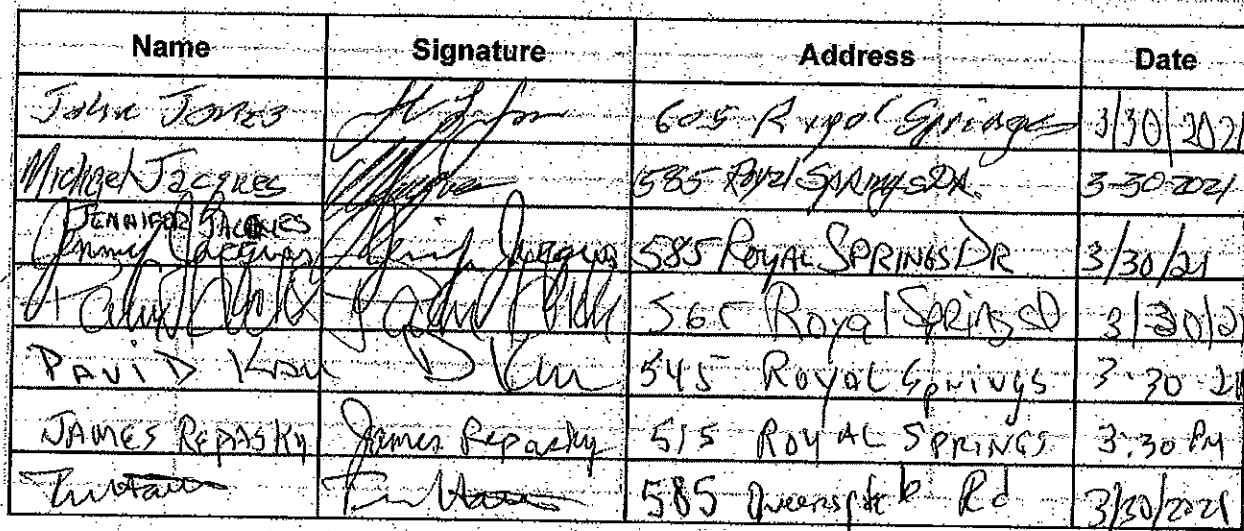 Name Signature Address Date
John Jones 605 Royal Springs 3/30/2021
Michael Jacques 585 Royal Springs DR. 3-30-2021
JENNIFER JACQUES
Jenny Jacques Jennifer Jacques 585 ROYAL SPRINGS DR 3/30/21
565 Royal Springs D 3/30/21
DAVID D 545 ROYAL Springs 3-30-21
JAMES REPASKY James Repasky 515 ROYAL SPRINGS 3:30 PM
585 Rd 3/30/2021